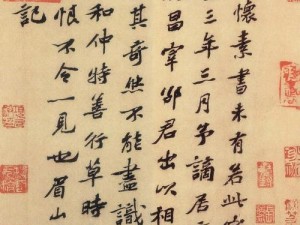 懷素書未有若此完
三年三月予謫居
昌宰邵君出以相
其奇然不能盡識
和仲特善行草時
恨不令一見也眉山
記